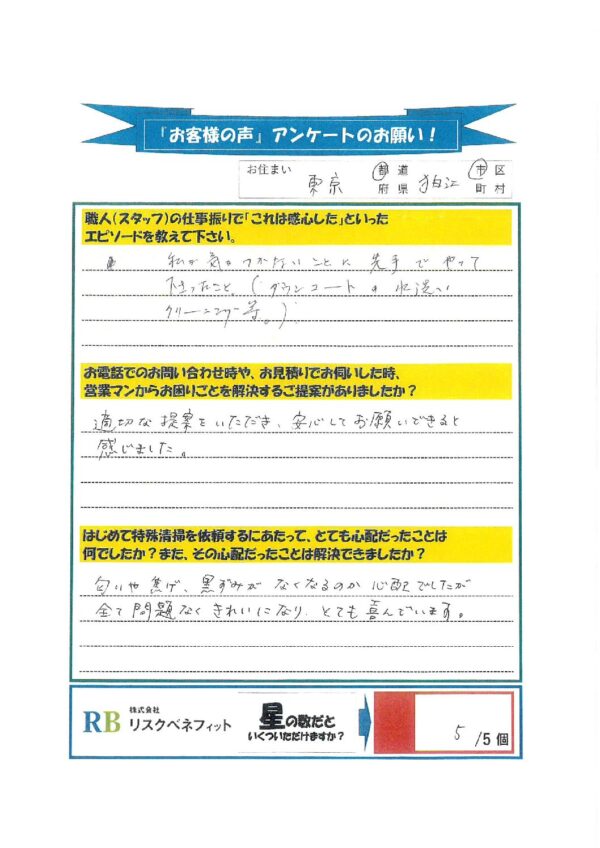 『お客様の声』アンケートのお願い!
お住まい 東京 都道府県 狛江 市区町村
職人(スタッフ)の仕事振りで「これは感心した」といった
エピソードを教えて下さい。
私が気がつかないことに先手でやって
下さったこと。(ダウンコートの水洗い
クリーニング等。)
お電話でのお問い合わせ時や、お見積りでお伺いした時、
営業マンからお困りごとを解決するご提案がありましたか?
適切な提案をいただき、安心してお願いできると
感じました。
はじめて特殊清掃を依頼するにあたって、とても心配だったことは
何でしたか?また、その心配だったことは解決できましたか?
匂いや焦げ、黒ずみがなくなるのか心配でしたが
全て問題なくきれいになり、とても喜んでいます。
RB 株式会社 リスクベネフィット
星の数だと
いくついただけますか?
5 /5個